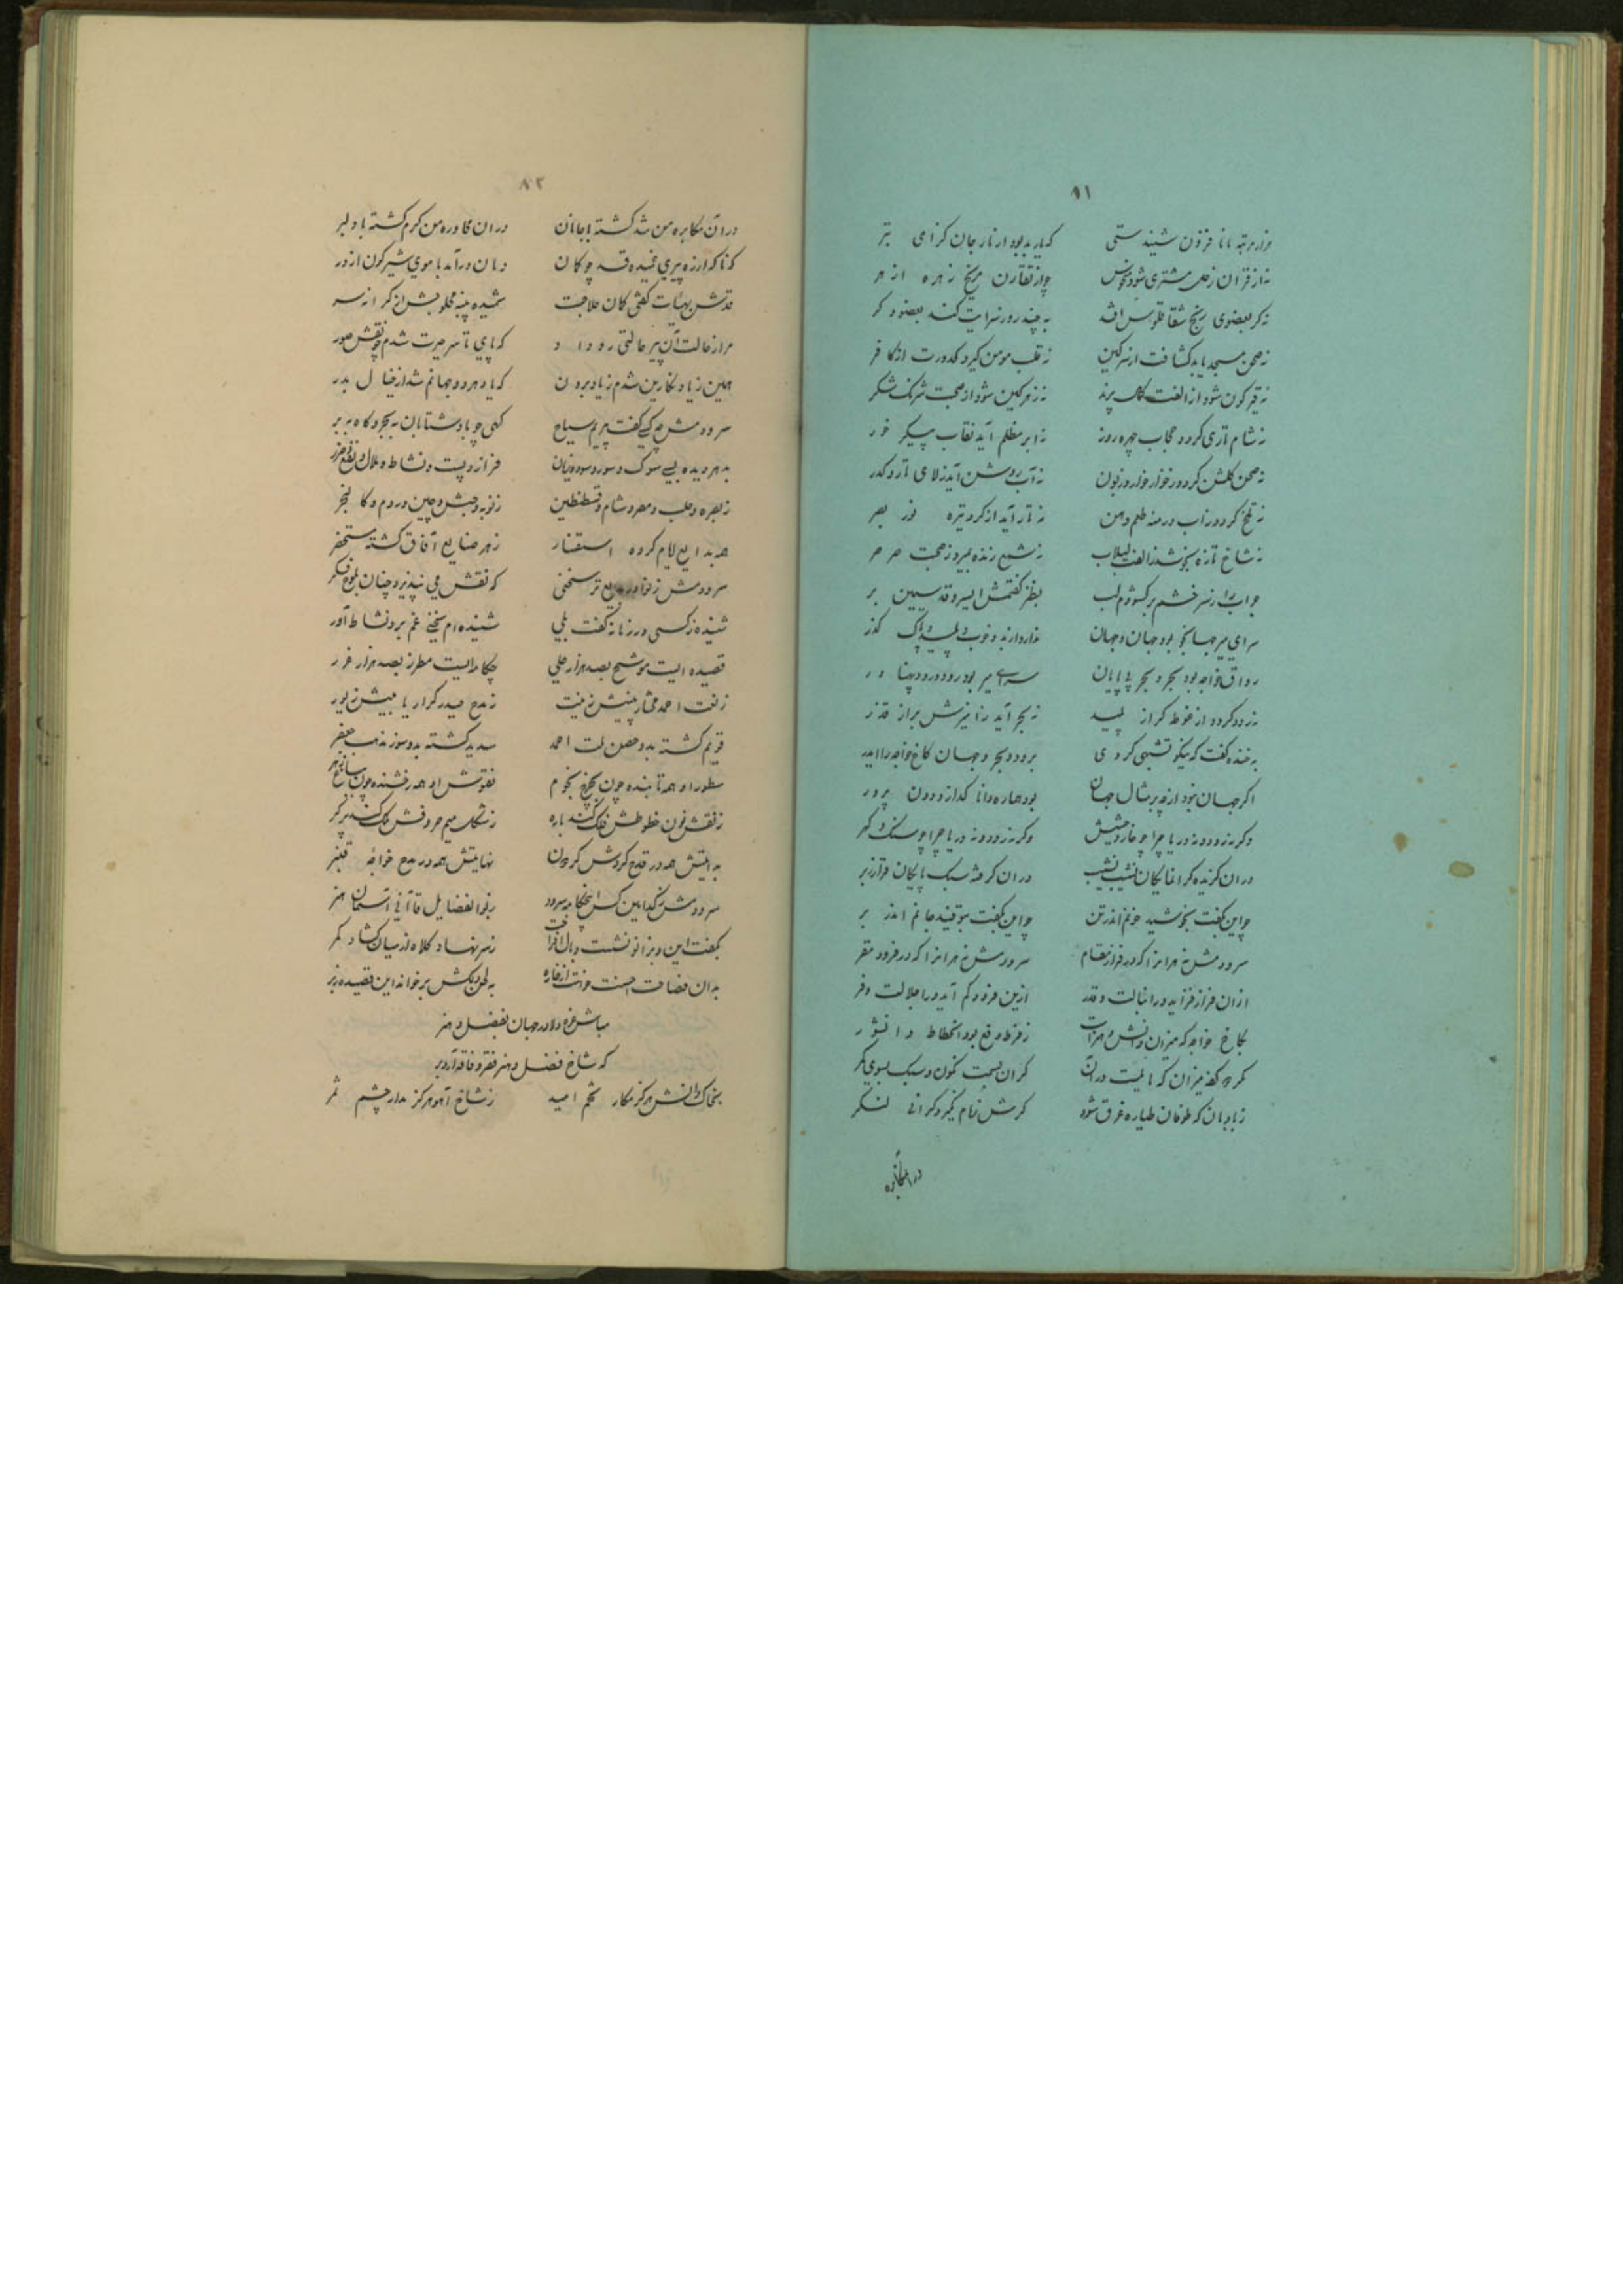 ۸۱
هزار مرتبه بانا فزون شنیدستی که یار بد بود از نار جان گزای بتر
نه از قران زحل مشتری شود منحوس چو از تقارن مریخ زهره ازهر
نه کر بعضوی رنج شقاقلوس افتد به چند روز سرایت کند بعضو دکر
نه صحن مسجد یابد کثافت از سرکین نه قلب مومن کیرد کدورت از کافر
نه قیرکون شود از الفت پرند نه زهرکین شود از صحبت شرنک شکر
نه شام تاری کردد حجاب چهره روز نه ابر مظلم آید نقاب پیکر خور
نه صحن کلشن کردد ز خوار خوار و زبون نه آب روشن آید ز لای تار و کدر
نه تلخ کردد از آب درمنه طعم دهن نه تار آید از کرد تیره نور بصر
نه شاخ تازه بخوشد ز الفت لبلاب نه شمع زنده بمیرد ز صحبت صرصر
جواب را ز سر خشم برکشودم لب بطنز کفتمش ای سرو قد سیمین بر
سرای میر جهانجو بود جهان و جهان مدار دارند و خوب و پلید و پاک کذر
رواق خواجه بود بحر و بحر بی پایان سرای میر بود رود و رود پهناور
نه رود کردد از غوطه کراز پلید نه بحر آید ز آمیزش براز قذر
به خنده کفت که نیکو تشبهی کردی برود و بحر و جهان کاخ خواجه را ایدر
اکر جهان نبود از چه بر مثال جهان بود هماره دانا کداز و دون پرور
وکر نه رود و نه دریا چرا چو خار و حشیش وکر نه رود و نه دریا چرا چو سنک و کهر
در آن کزیده کرانمایکان نشیب نشیب در آن کرفته سبک پایکان فراز زبر
چو این بکفت بخوشید خونم اندر تن چو این بکفت بتوفید جانم اندر بر
سرودمش نه هرانرا که در فراز مقام سرودمش نه هرانرا که در فرود مقر
ازان فراز فزاید ورا نبالت و قدر ازین فرود کم آید ورا جلالت و فر
بکاخ خواجه که میزان دانش و هنرات ز فرط وقع بود انحطاط دانشور
نکر به کفه میزان که بایست در آن کران بسمت نکون و سبک بسوی زبر
ز بادبان که طوفان طیاره غرق شود کرش زمام نکیرد کرانی لنکر
در آن مکابره
۸۲
در آن مکابره من شد کشته با جانان در ان محاوره من کرم کشته با دلبر
که ناکه از ره پیری خمیده قد چوکان دمان درآمد با موی شیرکون از در
قدش بهیات کفتی کمان حلاجست شمیده پنبه محلوجش از کرانه سر
مرا ز حالت آن پیر حالتی رو داد که پای تا سر حیرت شدم چو نقش صور
همین ز یاد نکارین شدم ز یاد برون که یاد هر دو جهانم شد از خیال بدر
سرودمش چه کسی کفت پیرم سیاح کهی چو باد شتابان به بحر و کاه به بر
بدهر دیده بسی سوک و سور و سود و زیان فراز و پست و نشاط و ملال و نفع و ضرر
ز بصره و حلب و مصر و شام و قسطنطین ز نوبه و حبش و چین و روم و کالنجر
همه بدایع ایام کرده استفسار ز هر صنایع آفاق کشته مستحضر
سرودمش ز نوادر بدیع تر سخنی که نقش می نپذیرد چنان بلوح فکر
شنیده ز کسی در زمانه کفت بلی شنیده ام سخنی غم بر و نشاط آور
قصیده ایست موشح بصد هزار حلی چکامه ایست مطرز بصد هزار غرر
ز نعت احمد مختار بینیش زینت ز مدح حیدر کرار یابیش زیور
قویم کشته بدو حصن ملت احمد سدید کشته بدو سور مذهب جعفر
سطور او همه تابنده چون بچرخ نجوم نقوش او همه رخشنده چون
ز نقش نون خطوطش فلک کند یاره ز شکل میم حروفش ملک کند پرکر
بدایتش همه در قدح کردش کردون نهایتش همه در مدح خواجه قنبر
سرودمش ز کدامین کس این چکامه سرود بوالفضایل قاآنی آسمان هنر
بکفت این و بزانو نشست و یال افراخت ز سر نهاد کلاه از میان کشاد کمر
بدان فصاحت احسنت خواست از نظاره به لحن دلکش برخواند این قصیده ز بر
مباش غره دلا در جهان بفضل و هنر
که شاخ فضل و هنر فقر و فاقه آرد بر
بخاک دانش هرکز مکار تخم امید ز شاخ آهو هرکز مدار چشم ثمر